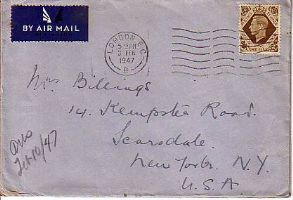 BY AIR MAIL
LONDON
FEB
1947
Mrs Billings
14. Kempster Road.
Scarsdale.
New York. N.Y.
U.S.A
Ans
Feb 10/47